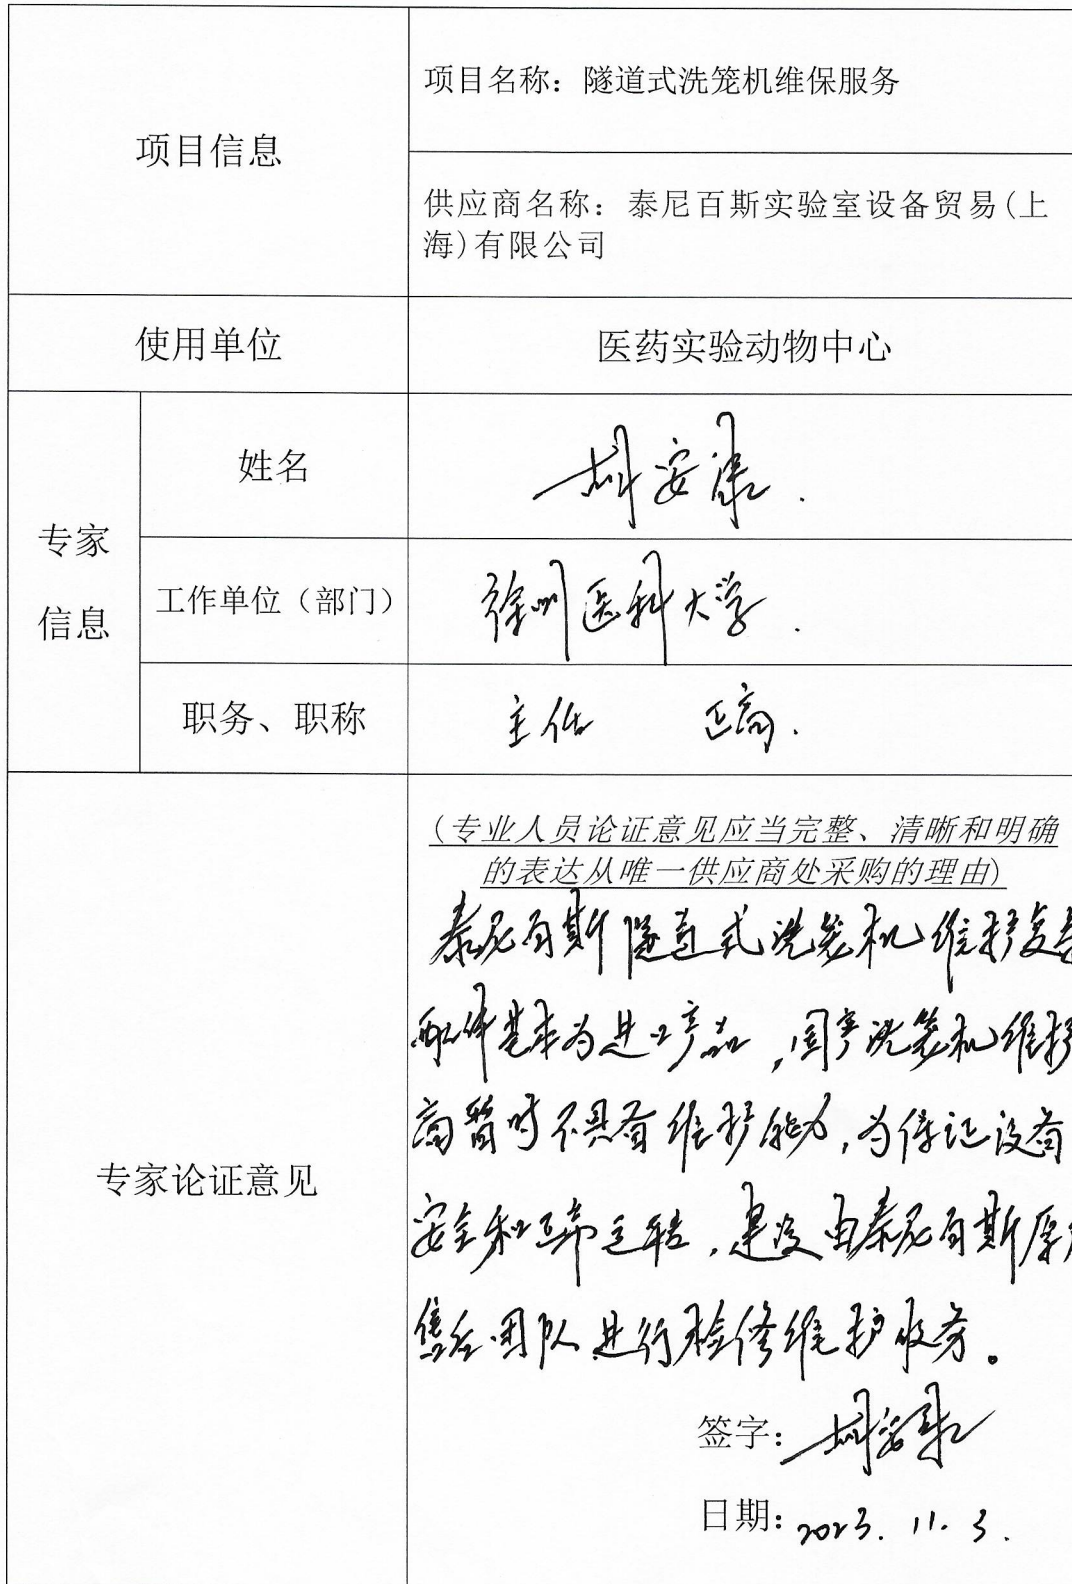 项目信息
项目名称：隧道式洗笼机维保服务
供应商名称：泰尼百斯实验室设备贸易(上
海)有限公司
使用单位
医药实验动物中心
专家
信息
姓名
安康.
工作单位（部门）
徐州医科大学.
职务、职称
主任 正高.
专家论证意见
(专业人员论证意见应当完整、清晰和明确
的表达从唯一供应商处采购的理由)
泰尼百斯隧道式洗笼机维护复杂
配件基本为进口产品,国产洗笼机维护
商暂时不具备维护能力,为保证设备
安全和正常运转,建议由泰尼百斯原厂
售后团队进行检修维护服务。
签字:
日期: 2023. 11. 3.